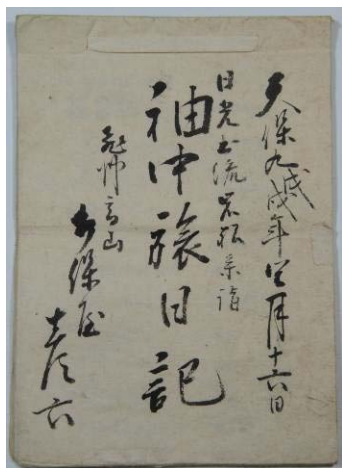 天保九戊戌年四月十六日
日光出流岩船参詣
袖中旅日記
飛州高山
保屋
六